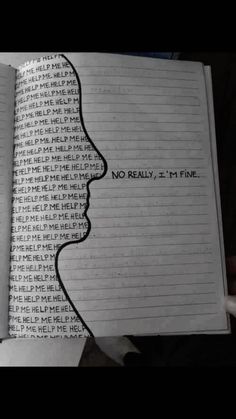 ME HELP ME HE
HELP ME HELP ME H
ME HELP ME HELP
HELP ME HELP ME
ME HELP ME HELP M
HELP ME HELP ME
ME HELP ME HELP ME
HELP ME HELP ME HE
ME HELP ME HELP ME
HELP ME HELP ME HELP
ME HELP ME HELP ME HE
NO REALLY, I'M FINE.
HELP ME HELP ME HELP
ME HELP ME HELP ME
HELP ME HELP ME HEL
ME HELP ME HELP ME
HELP ME HELP ME HEL
ME HELP ME HELP ME
HELP ME HELP ME
ME HELP ME HELP
HELP ME HELP ME
ME HELP ME HELP
HELP ME HELP ME
ME HELP ME HELP ME
HELP ME HELP ME HELP ME